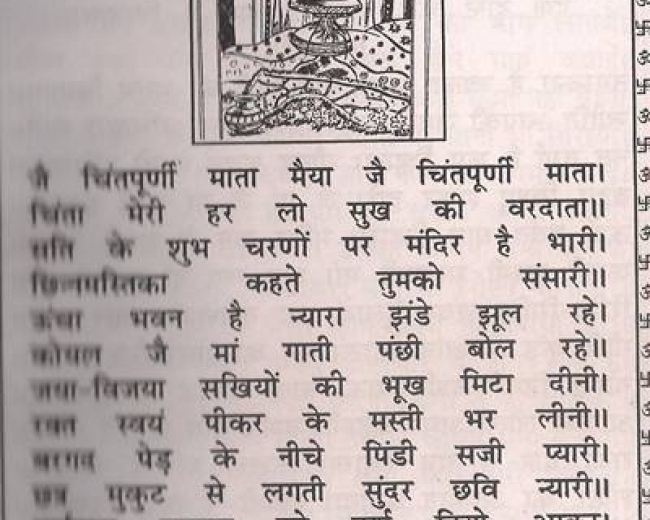 जै चिंतपूर्णी माता मैया जै चिंतपूर्णी माता।
चिंता मेरी हर लो सुख की वरदाता॥
सति के शुभ चरणों पर मंदिर है भारी।
छिन्नमस्तिका कहते तुमको संसारी॥
ऊंचा भवन है न्यारा झंडे झूल रहे।
कोयल जै मां गाती पंछी बोल रहे॥
जया-विजया सखियों की भूख मिटा दीनी।
रक्त स्वयं पीकर के मस्ती भर लीनी॥
बरगद पेड़ के नीचे पिंडी सजी प्यारी।
छत्र मुकुट से लगती सुंदर छवि न्यारी॥